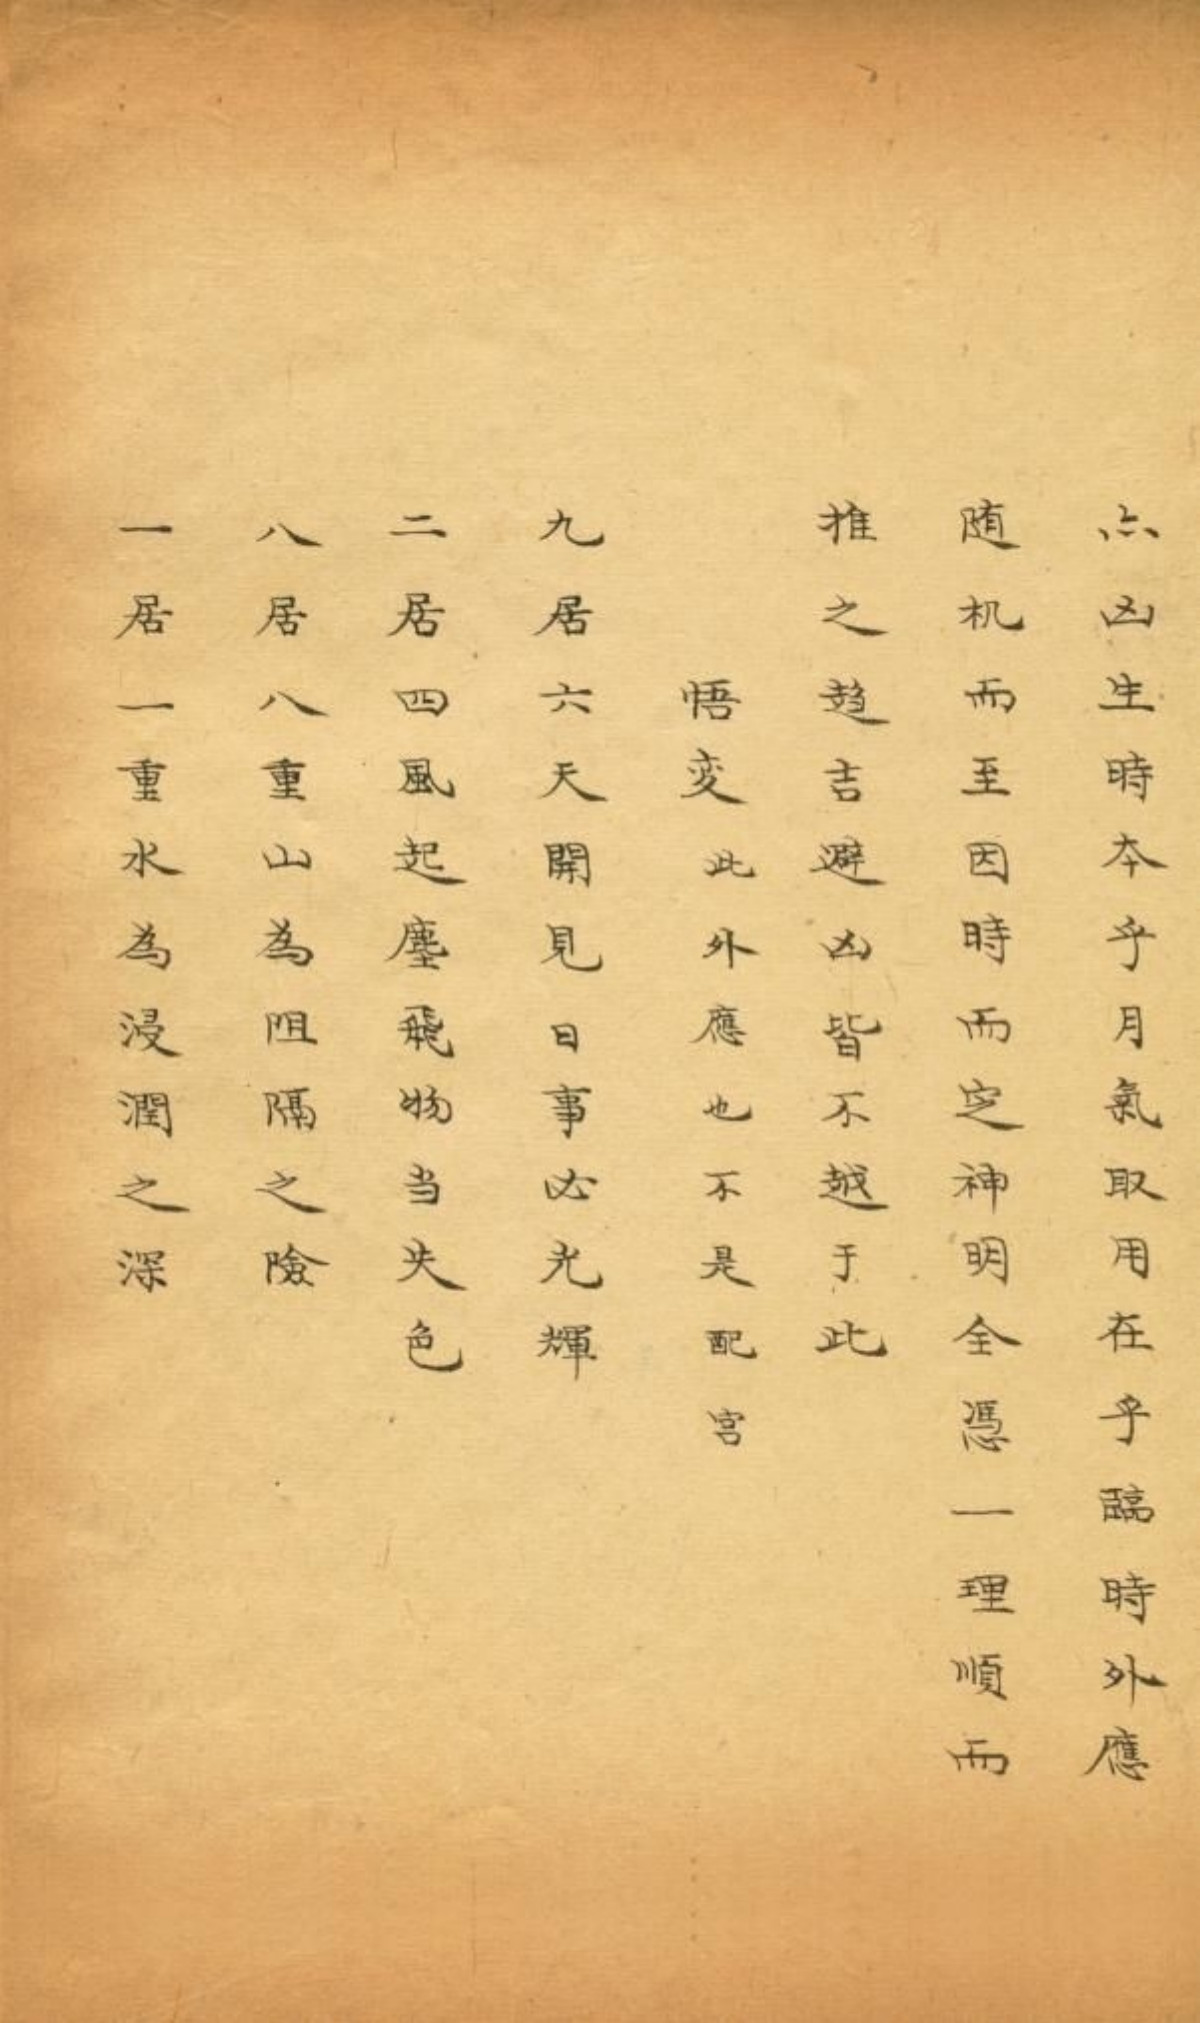 亦凶生時本乎月氣取用在乎臨時外應
随机而至因時而定神明全憑一理順而
推之趋吉避凶皆不越于此
悟变此外應也不是配宫
九居六天開見日事必光輝
二居四風起塵飛物当失色
八居八重山為阻隔之險
一居一重水為浸潤之深